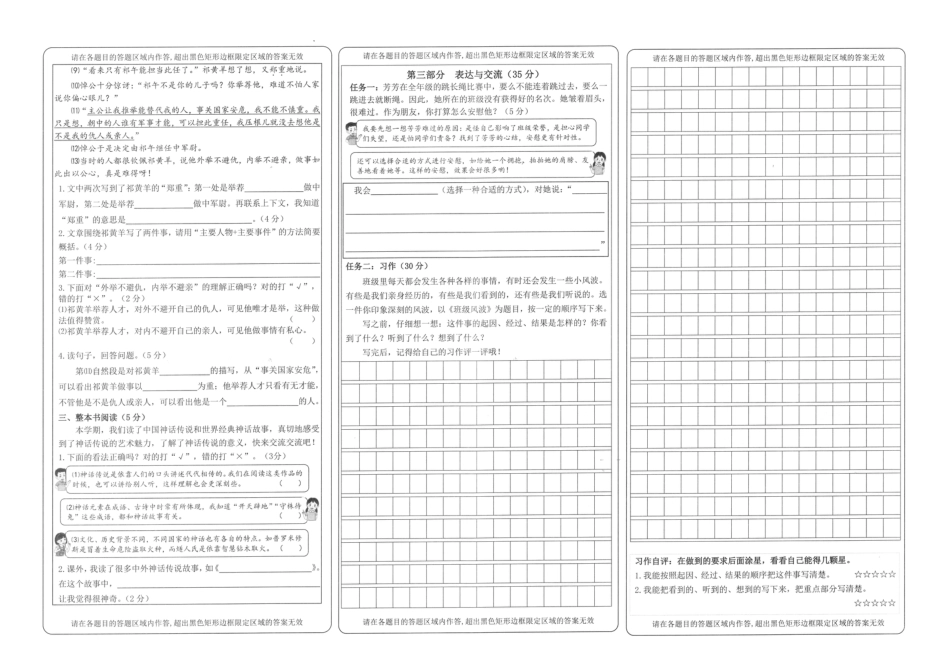 请在各题目的答题区域内作答,超出黑色矩形边框限定区域的答案无效
⑼“看来只有祁午能担当此任了。”祁黄羊想了想，又郑重地说。
⑽悼公十分惊讶：“祁午不是你的儿子吗？你举荐他，难道不怕人家
说你偏心眼儿？”
⑾“主公让我推举能替代我的人，事关国家安危，我不能不慎重。我
只是想，朝中的人谁有军事才能，可以担此重任，我压根儿就没去想他是
不是我的仇人或亲人。”
⑿悼公于是决定由祁午继任中军尉。
⒀当时的人都很钦佩祁黄羊，说他外举不避仇，内举不避亲，做事如
此出以公心，真是难得呀！
1.文中两次写到了祁黄羊的“郑重”：第一处是举荐____________做中
军尉，第二处是举荐____________做中军尉，再联系上下文，我知道
“郑重”的意思是____________。（4分）
2.文章围绕祁黄羊写了两件事，请用“主要人物+主要事件”的方法简要
概括。（4分）
第一件事:____________
第二件事:____________
3.下面对“外举不避仇，内举不避亲”的理解正确吗？对的打“√”，
错的打“×”。（2分）
⑴祁黄羊举荐人才，对外不避开自己的仇人，可见他唯才是举，这种做
法值得赞赏。（ ）
⑵祁黄羊举荐人才，对内不避开自己的亲人，可见他做事情有私心。
（ ）
4.读句子，回答问题。（5分）
第⑾自然段是对祁黄羊__________的描写，从“事关国家安危”，
可以看出祁黄羊做事以__________为重；他举荐人才只看有无才能，
不管他是不是仇人或亲人，可以看出他是一个____________的人。
三、整本书阅读（5分）
本学期，我们读了中国神话传说和世界经典神话故事，真切地感受
到了神话传说的艺术魅力，了解了神话传说的意义，快来交流交流吧！
1.下面的看法正确吗？对的打“√”，错的打“×”。（3分）
⑴神话传说是依靠人们的口头讲述代代相传的。我们在阅读这类作品的
时候，也可以讲给别人听，这样理解也会更深刻些。（ ）
⑵神话元素在成语、古诗中时常有所体现，我知道“开天辟地”“守株待
兔”这些成语，都和神话故事有关。（ ）
⑶文化、历史背景不同，不同国家的神话也有各自的特点。如普罗米修
斯是冒着生命危险盗取火种，而燧人氏是依靠智慧钻木取火。（ ）
2.课外，我读了很多中外神话传说故事，如《____________》。
在这个故事中，____________
让我觉得很神奇。（2分）
请在各题目的答题区域内作答,超出黑色矩形边框限定区域的答案无效
请在各题目的答题区域内作答,超出黑色矩形边框限定区域的答案无效
第三部分 表达与交流（35分）
任务一：芳芳在全年级的跳长绳比赛中，要么不能连着跳过去，要么一
跳进去就断绳。因此，她所在的班级没有获得好的名次。她皱着眉头，
很难过。作为朋友，你打算怎么安慰他？（5分）
我要先想一想芳芳难过的原因：是怪自己影响了班级荣誉，是担心同学
们失望，还是怕同学们责备？找到了芳芳的心结，安慰更有针对性。
还可以选择合适的方式进行安慰，如给她一个拥抱，拍拍她的肩膀，友
善地看着她等。这样的安慰，效果会好很多哦！
我会____________（选择一种合适的方式），对她说：“________
____________
____________
____________”
任务二：习作（30分）
班级里每天都会发生各种各样的事情，有时还会发生一些小风波。
有些是我们亲身经历的，有些是我们看到的，还有些是我们听说的。选
一件你印象深刻的风波，以《班级风波》为题目，按一定的顺序写下来。
写之前，仔细想一想：这件事的起因、经过、结果是怎样的？你看
到了什么？听到了什么？想到了什么？
写完后，记得给自己的习作评一评哦！
请在各题目的答题区域内作答,超出黑色矩形边框限定区域的答案无效
请在各题目的答题区域内作答,超出黑色矩形边框限定区域的答案无效
习作自评：在做到的要求后面涂星，看看自己能得几颗星。
1.我能按照起因、经过、结果的顺序把这件事写清楚。 ☆☆☆☆☆
2.我能把看到的、听到的、想到的写下来，把重点部分写清楚。
☆☆☆☆☆
请在各题目的答题区域内作答,超出黑色矩形边框限定区域的答案无效